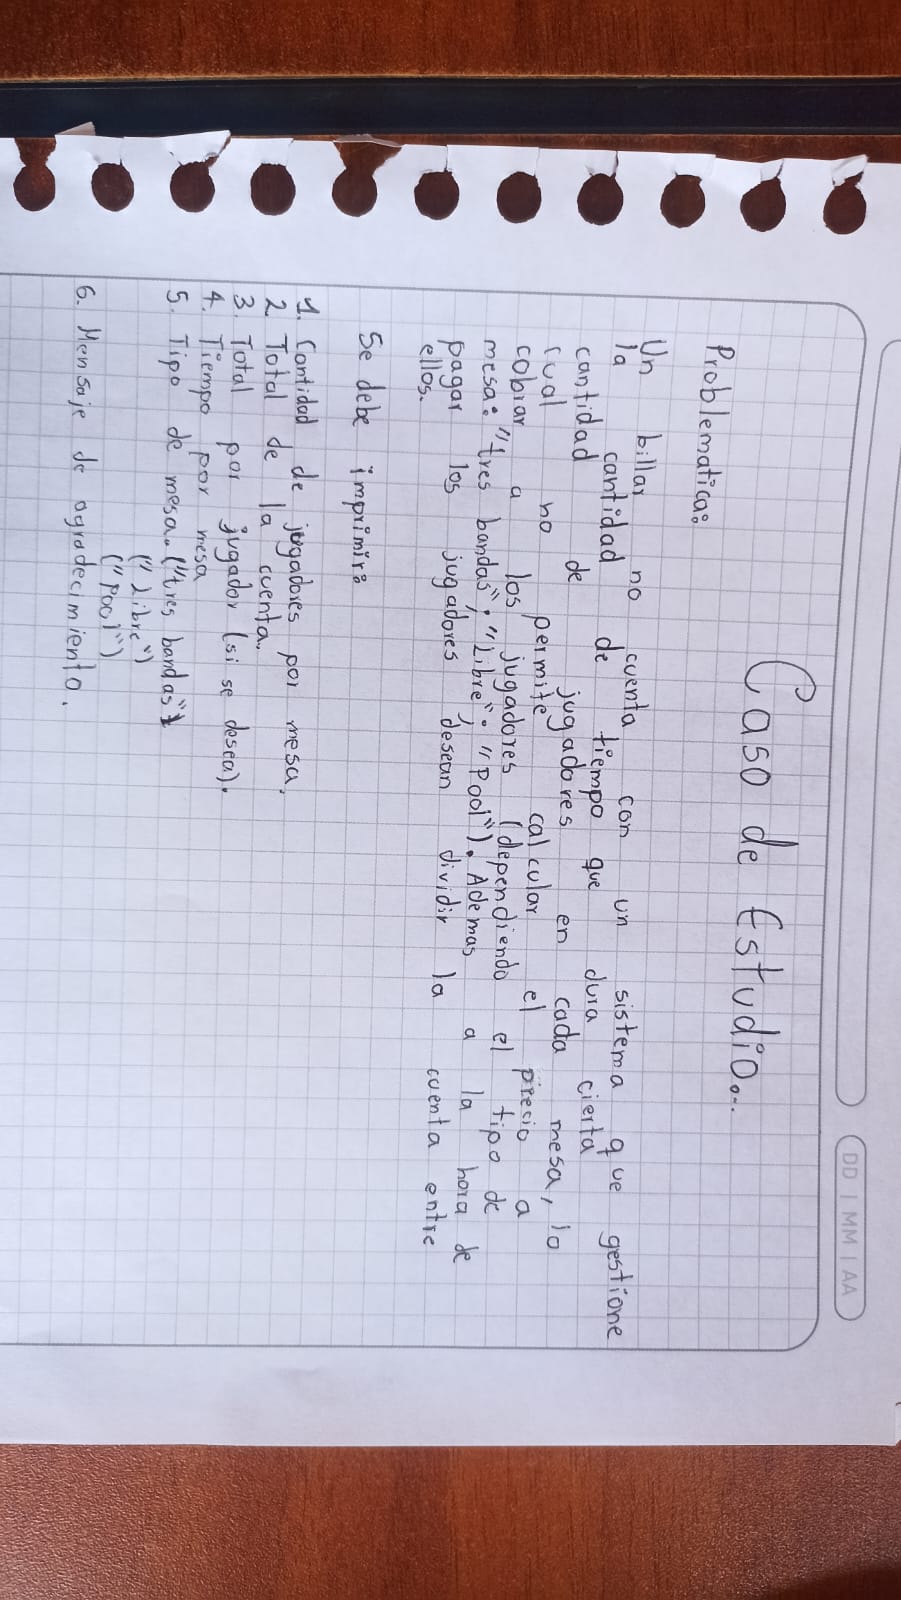 DD | MM | AA
Caso de Estudio...
Problematica:
Un billar no cuenta con un sistema que gestione
la cantidad de tiempo que dura cierta
cantidad de jugadores en cada mesa, lo
cual no permite calcular el precio a
cobrar a los jugadores (dependiendo el tipo de
mesa: "tres bandas", "Libre", "Pool"). Ademas a la hora de
pagar los jugadores desean dividir la cuenta entre
ellos.
Se debe imprimir:
1. Cantidad de jugadores por mesa.
2 Total de la cuenta.
3. Total por jugador (si se desea).
4. Tiempo por mesa
5. Tipo de mesa. ("tres bandas")
("Libre")
("Pool")
6. Mensaje de agradecimiento.